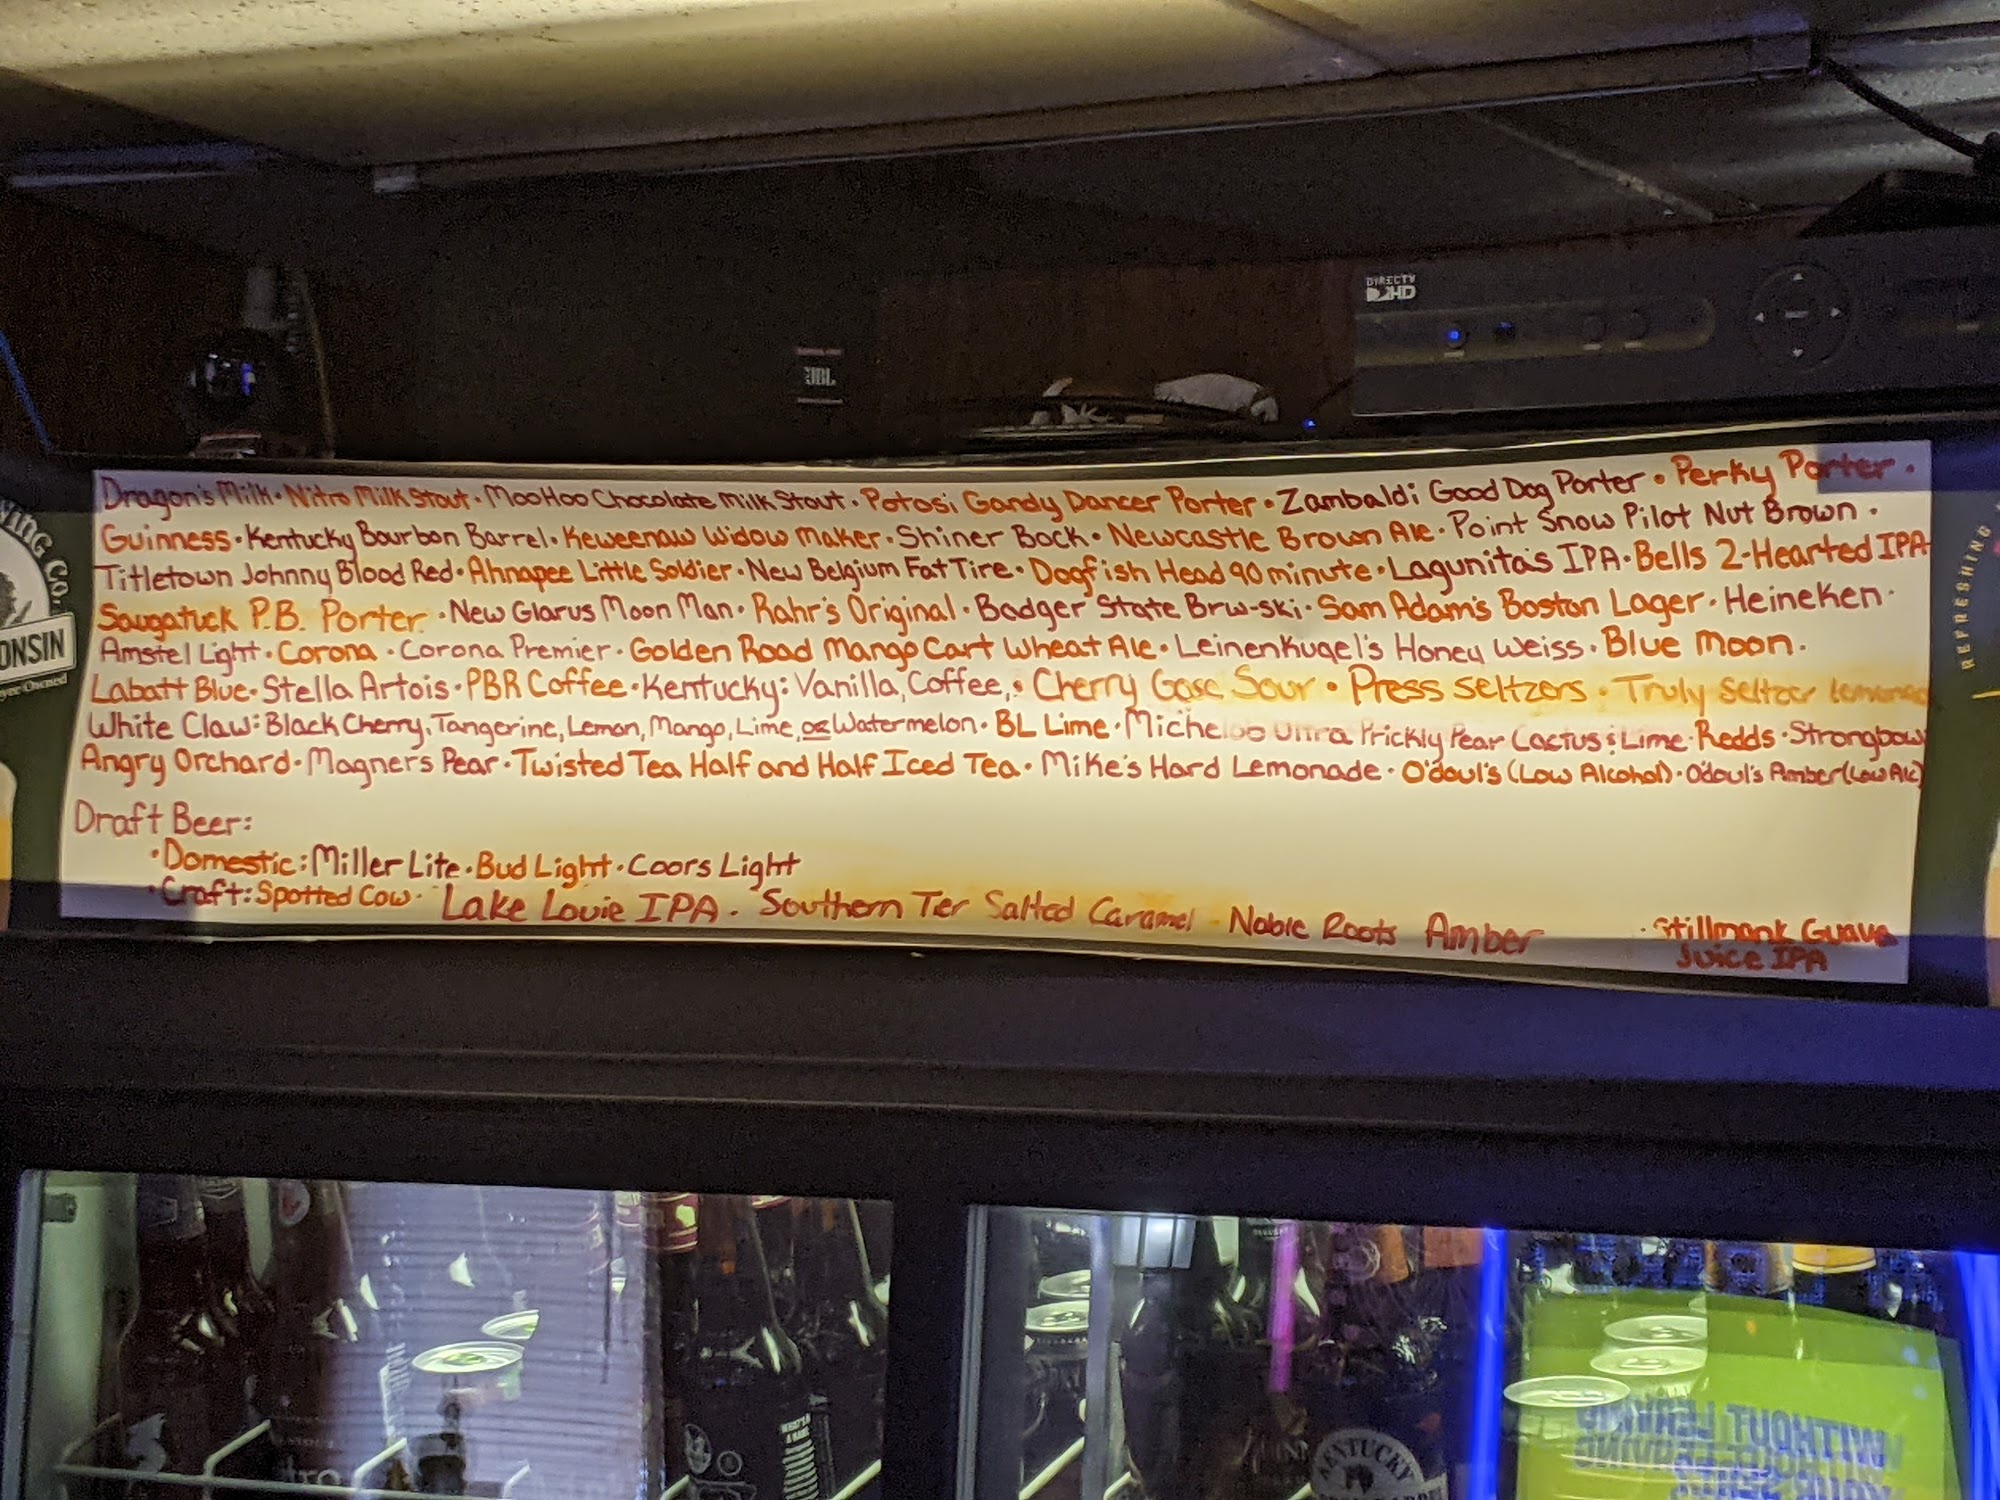 DIRECTV
HD
JBL
Dragon's Milk · Nitro Milk Stout · MooHoo Chocolate Milk Stout · Potosi Gandy Dancer Porter · Zambaldi Good Dog Porter · Perky Porter ·
Guinness · Kentucky Bourbon Barrel · Keweenaw Widow Maker · Shiner Bock · Newcastle Brown Ale · Point Snow Pilot Nut Brown ·
Titletown Johnny Blood Red · Ahnapee Little Soldier · New Belgium Fat Tire · Dogfish Head 90 minute · Lagunita's IPA · Bells 2-Hearted IPA
Saugatuck P.B. Porter · New Glarus Moon Man · Rahr's Original · Badger State Brw-ski · Sam Adam's Boston Lager · Heineken ·
Amstel Light · Corona · Corona Premier · Golden Road Mango Cart Wheat Ale · Leinenkugel's Honey Weiss · Blue Moon ·
Labatt Blue · Stella Artois · PBR Coffee · Kentucky: Vanilla, Coffee, · Cherry Gose Sour · Press seltzers · Truly Seltzer lemonad
White Claw: Black Cherry, Tangerine, Lemon, Mango, Lime, or Watermelon · BL Lime · Michelob Ultra Prickly Pear Cactus & Lime · Redds · Strongbow
Angry Orchard · Magners Pear · Twisted Tea Half and Half Iced Tea · Mike's Hard Lemonade · O'doul's (Low Alcohol) · O'doul's Amber (Low Alc)
Draft Beer:
· Domestic: Miller Lite · Bud Light · Coors Light
· Craft: Spotted Cow · Lake Louie IPA · Southern Ter Salted Caramel - Noble Roots Amber
· Stillmank Guava
Juice IPA
ONSIN
REFRESHING
KENTUCKY
WITHOUT LEAVING